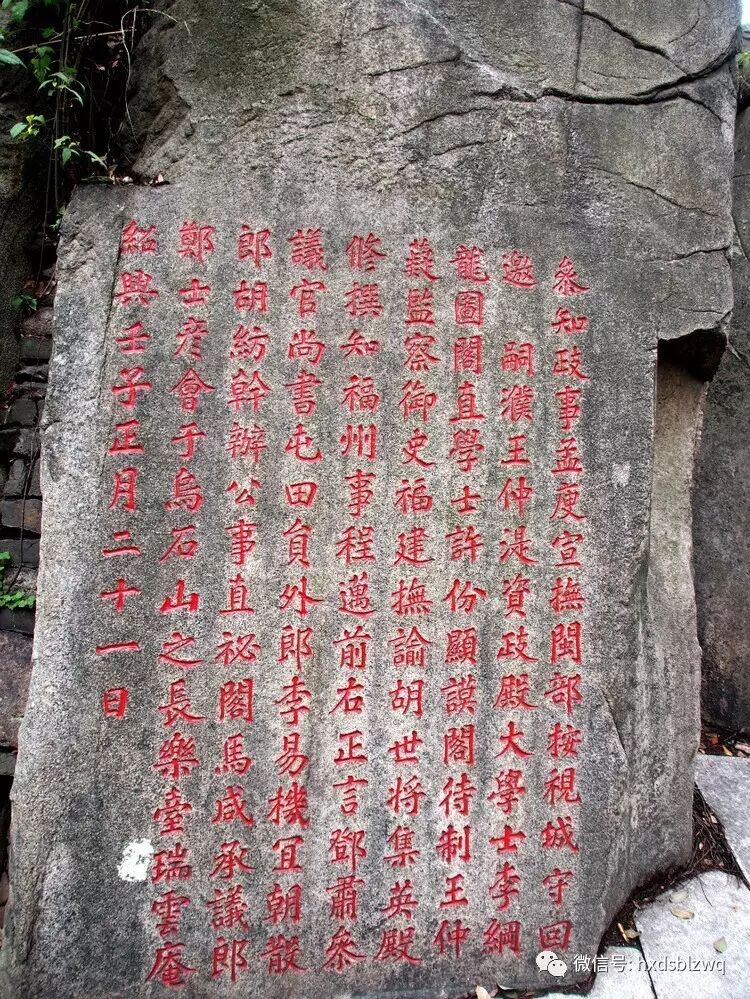 叅知政事孟庾宣撫閩部按視城守回
邀 嗣濮王仲湜資政殿大學士李綱
龍圖閣直學士許份顯謨閣待制王仲
薿監察御史福建撫諭胡世將集英殿
修撰知福州事程邁前右正言鄧肅叅
議官尚書屯田員外郎李易機宜朝散
郎胡紡幹辦公事直祕閣馬咸承議郎
鄭士彥會于烏石山之長樂臺瑞雲庵
紹興壬子正月二十一日
微信号: hxdsblzwq